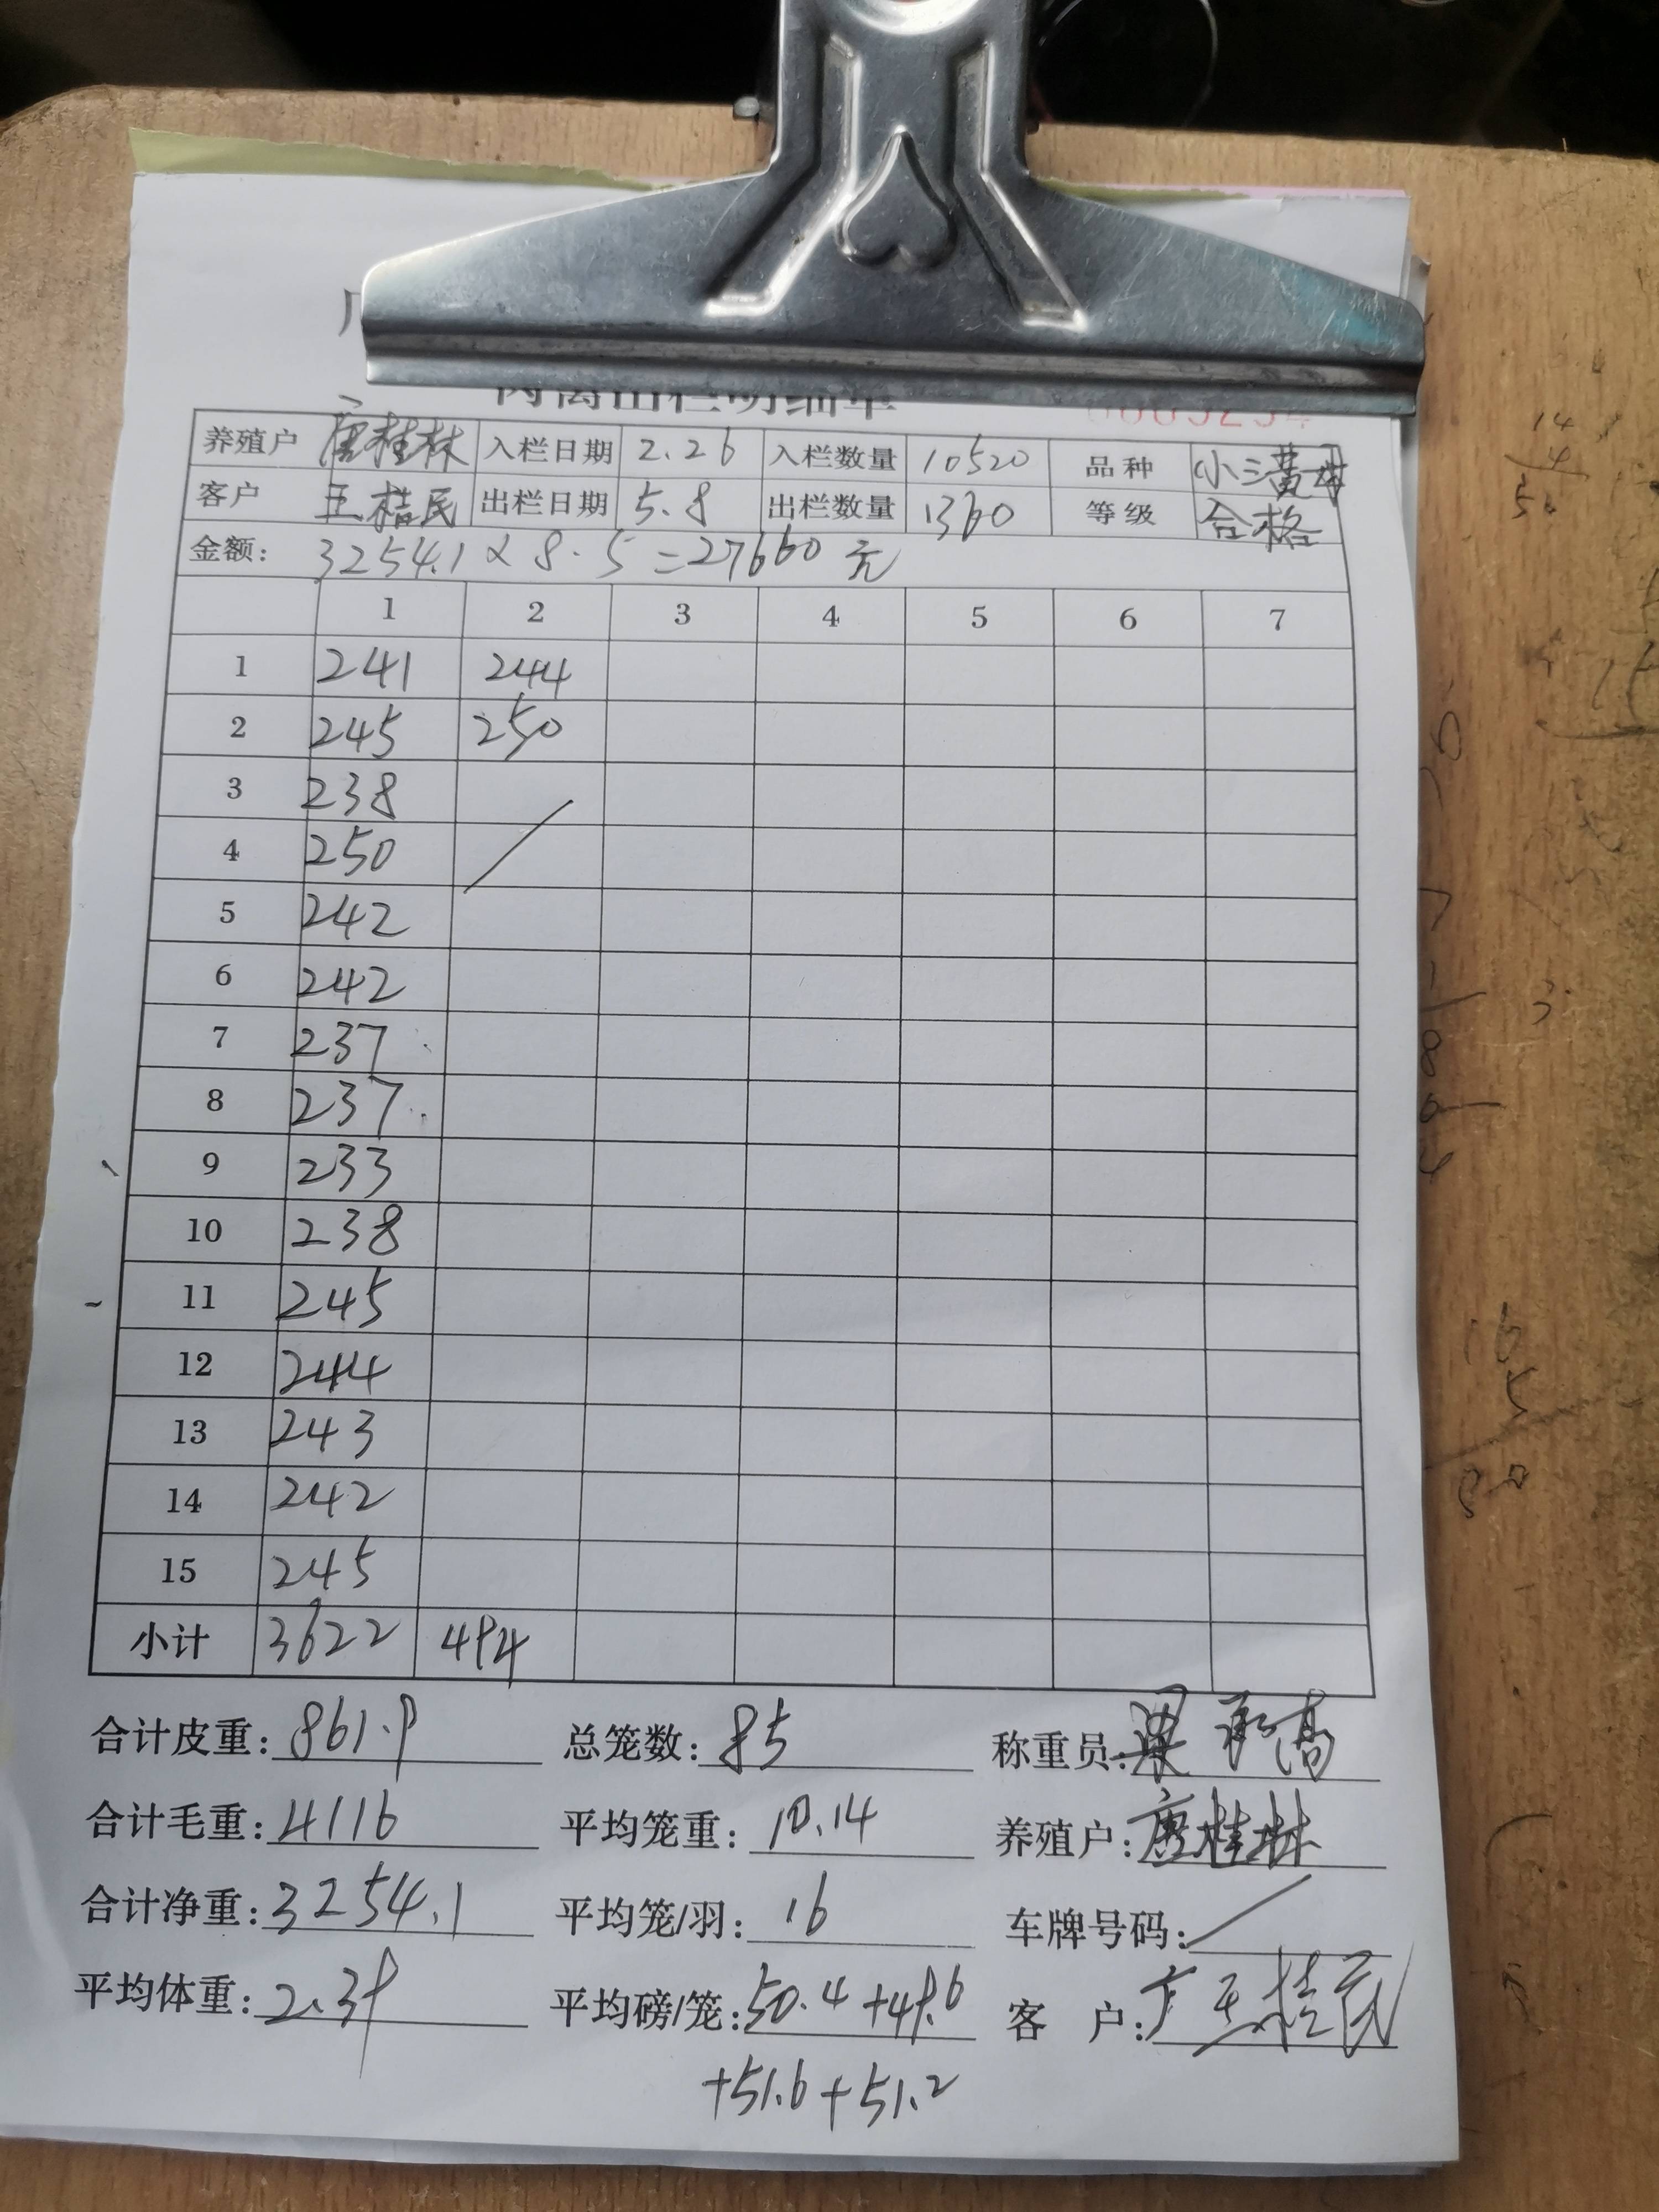 肉禽出栏明细单
养殖户 唐桂林 入栏日期 2.26 入栏数量 10520 品种 小三黄母
客户 王桂民 出栏日期 5.8 出栏数量 1360 等级 合格
金额: 3254.1 × 8.5 = 27660 元
1 2 3 4 5 6 7
1 241 244
2 245 250
3 238
4 250
5 242
6 242
7 237
8 237
9 233
10 238
11 245
12 244
13 243
14 242
15 245
小计 3622 494
合计皮重: 861.9 总笼数: 85 称重员:
合计毛重: 4116 平均笼重: 10.14 养殖户: 唐桂林
合计净重: 3254.1 平均笼/羽: 16 车牌号码: /
平均体重: 2.39 平均磅/笼: 50.4+49.6 客 户: 王桂民
+51.6+51.2